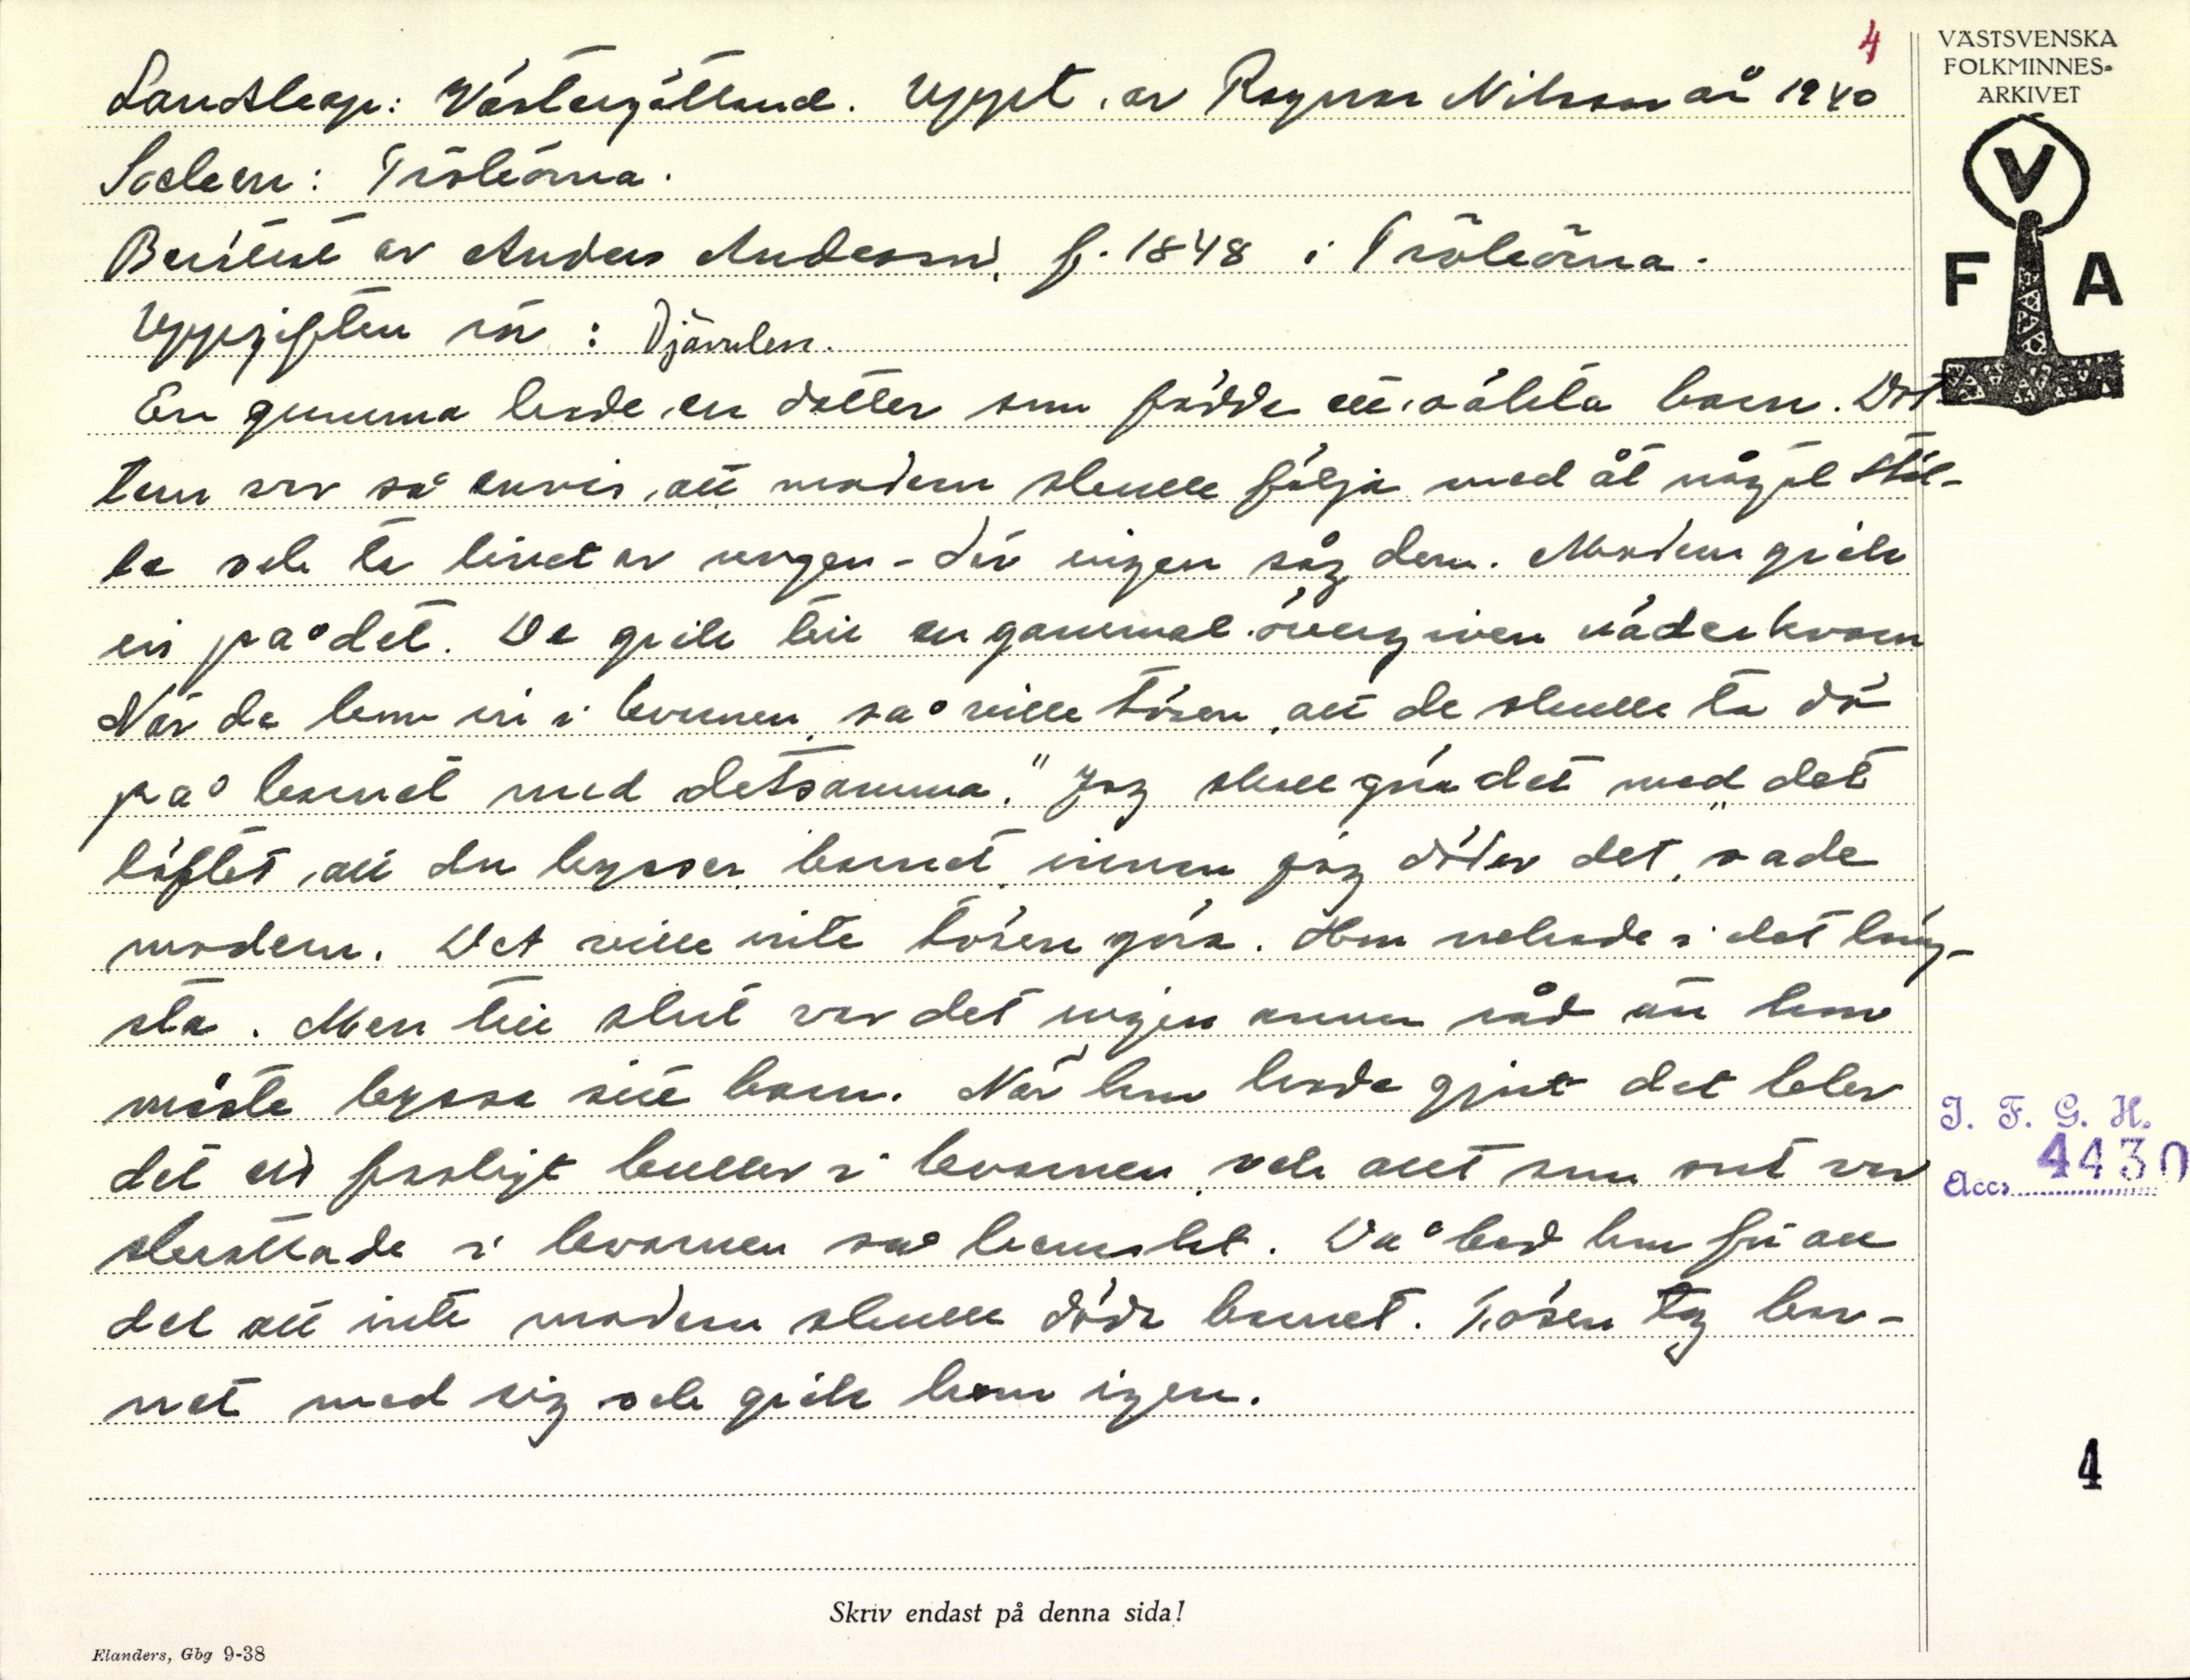 4
VÄSTSVENSKA
FOLKMINNES-
ARKIVET
V
F A
Landskap: Västergötland. Uppt. av Ragnar Nilsson år 1940
Socken: Trökörna.
Berättat av Anders Andersson, f. 1848 i Trökörna.
Uppgiften rör: Djävulen.
En gumma hade en dotter som födde ett oäkta barn. Dot-
tern var så envis, att modern skulle följa med åt något stäl-
le och ta livet av ungen - där ingen såg dem. Modern gick
in på det. De gick till en gammal övergiven väderkvarn
När de kom in i kvarnen, så ville tösen, att de skulle ta dö
på barnet med detsamma. "Jag skall göra det med det
löftet, att du kysser barnet, innan jag dödar det," sade
modern. Det ville inte tösen göra. Hon nekade i det läng-
sta. Men till slut var det ingen annan råd än hon
måste kyssa sitt barn. När hon hade gjort det blev
det ett farligt buller i kvarnen, och allt som ont var
skrattade i kvarnen så hemskt. Då bad hon för all
del att inte modern skulle döda barnet. Tösen tog bar-
net med sig och gick hem igen.
I. F. G. H.
Acc. 4430
4
Skriv endast på denna sida!
Elanders, Gbg 9-38